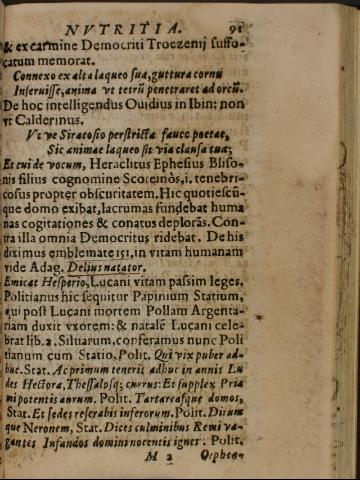 NVTRITIA. 91
& ex carmine Democriti Troezenij suffo-
catum memorat.
Connexo ex alta laqueo sua, guttura cornu
Inseruisse, anima vt tetrū penetraret ad orcū.
De hoc intelligendus Ouidius in Ibin; non
vt Calderinus.
Vt ve Siracosio perstricta fauce poetae,
Sic animae laqueo sit via clausa tua;
Et cui de vocum, Heraclitus Ephesius Bliso-
nis filius cognomine Scoteinòs, i. tenebri-
cosus propter obscuritatem. Hic quotiescū-
que domo exibat, lacrumas fundebat huma
nas cogitationes & conatus deplorās. Con-
tra illa omnia Democritus ridebat. De his
diximus emblemate 151, in vitam humanam
vide Adag. Delius natator.
Emicat Hesperio, Lucani vitam passim leges.
Politianus hic sequitur Papinium Statium,
qui post Lucani mortem Pollam Argenta-
riam duxit vxorem: & natalē Lucani cele-
brat lib. 2. Siluarum, conferamus nunc Poli
tianum cum Statio, Polit. Qui vix puber ad-
huc. Stat. Ac primum teneris adhuc in annis Lu
des Hectora, Thessalosq; currus: Et supplex Pria
mi potentis aurum. Polit. Tartareasque domos,
Stat. Et sedes reserabis inferorum. Polit. Dirum
que Neronem, Stat. Dices culminibus Remi va-
gantes Infandos domini nocentis ignes. Polit.
M 2 Orpheon-